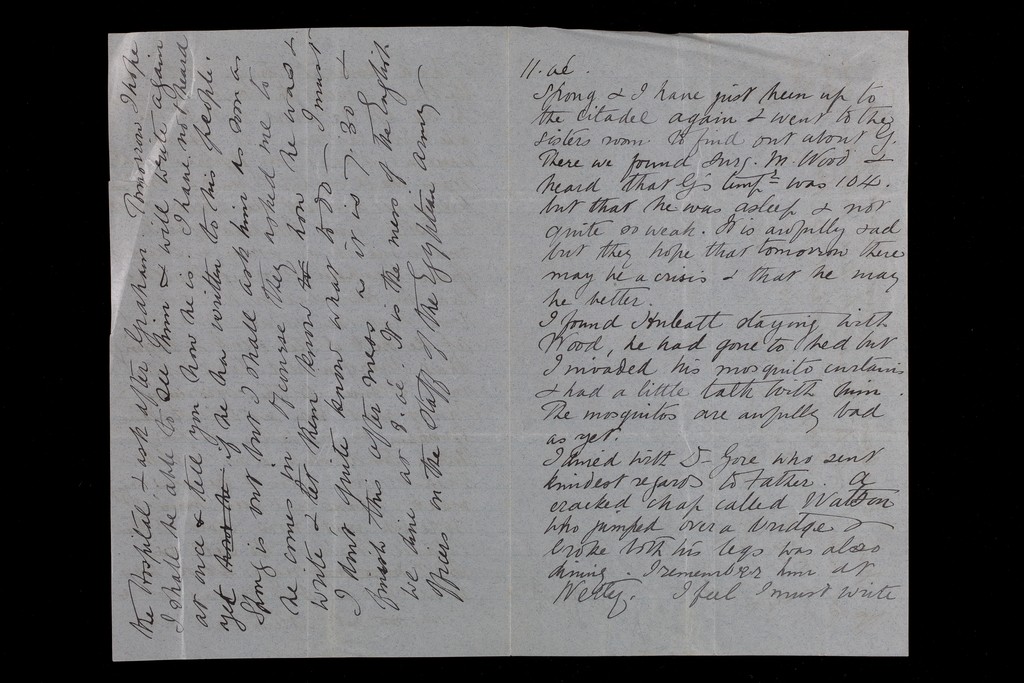 the Hospital & ask after Graham. Tomorrow I hope
I shall be able to see him & will write again
at once & tell you how he is. I have not heard
yet if he has written to his people.
Spong is out but I shall ask him as soon as
he comes in. Of course they asked me to
write & let them know to how he was &
I don't quite know what to do — I must
finish this after mess as it is 7.30 &
we dine at It is the mess of the English
Officers on the Staff of the Egyptian army —
11.
Spong & I have just been up to
the citadel again & went to the
sisters room to find out about G.
There we found Surg. M. Wood &
heard that G's temp was 104.
but that he was asleep & not
quite so weak. It is awfully sad
but they hope that tomorrow there
may be a crisis & that he may
be better.
I found staying with
Wood, he had gone to bed but
I invaded his mosquito curtains
& had a little talk with him.
The mosquitos are awfully bad
as yet.
I dined with Dr Gore who sent
kindest regards to Father. a
cracked chap called Watson
who jumped over a bridge &
broke both his legs was also
dining. I remember him at
Netley. I feel I must write